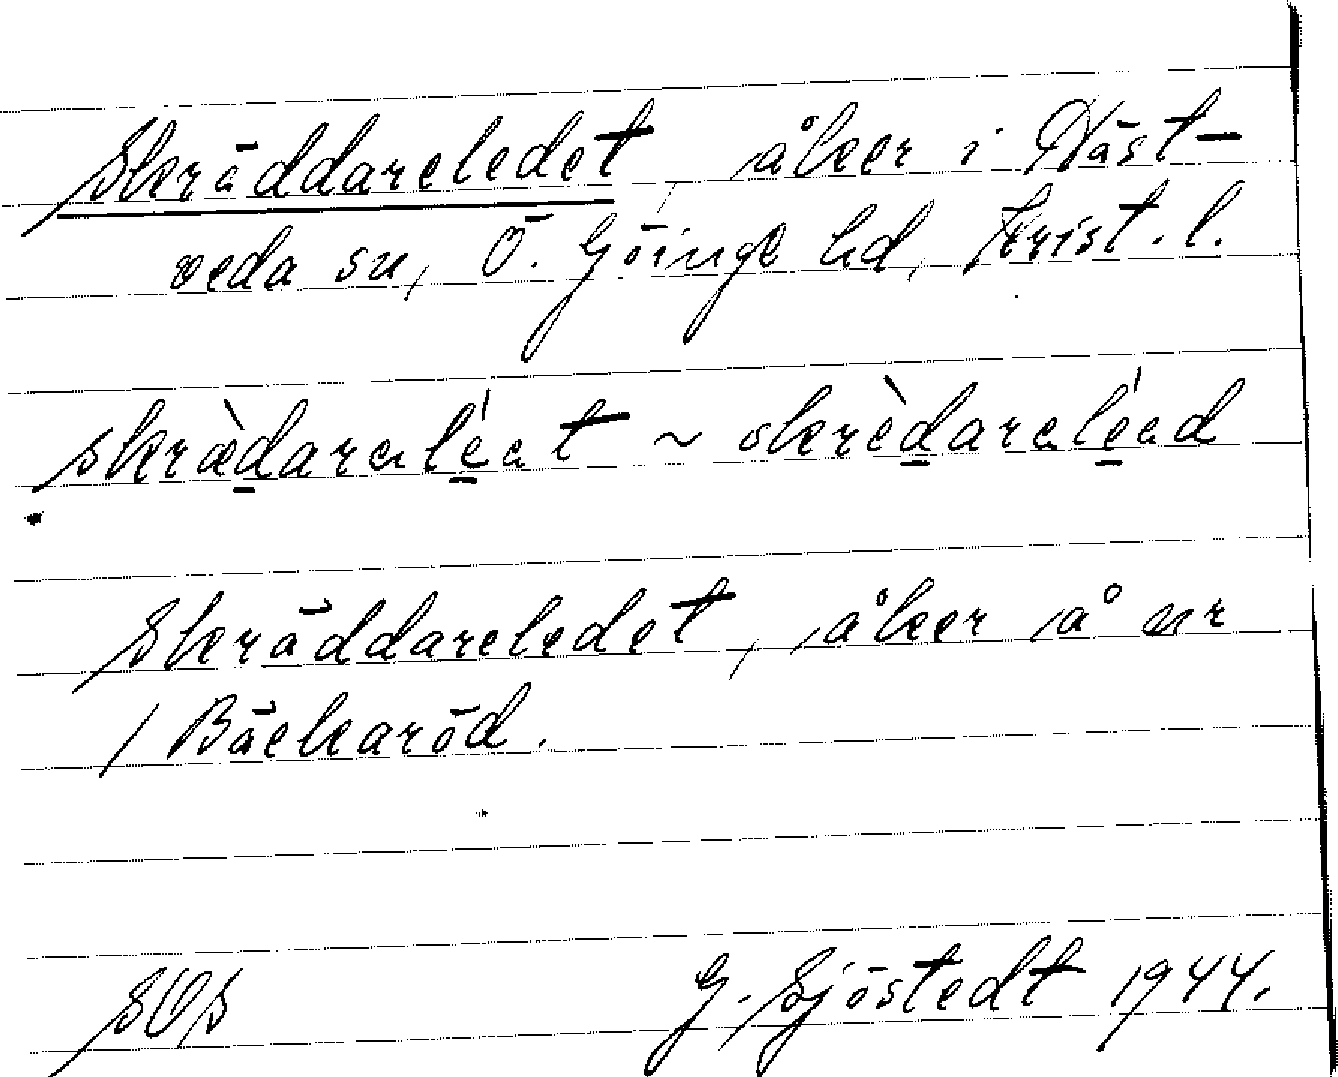 Skräddareledet, åker i Näst-
veda sn, Ö. Göinge hd, Krist. l.
skræ̀daralɛ́at ~ skrèdaraléad
Skräddareledet, åker å nr
1 Bäckaröd.
SOS G. Sjöstedt 1944.